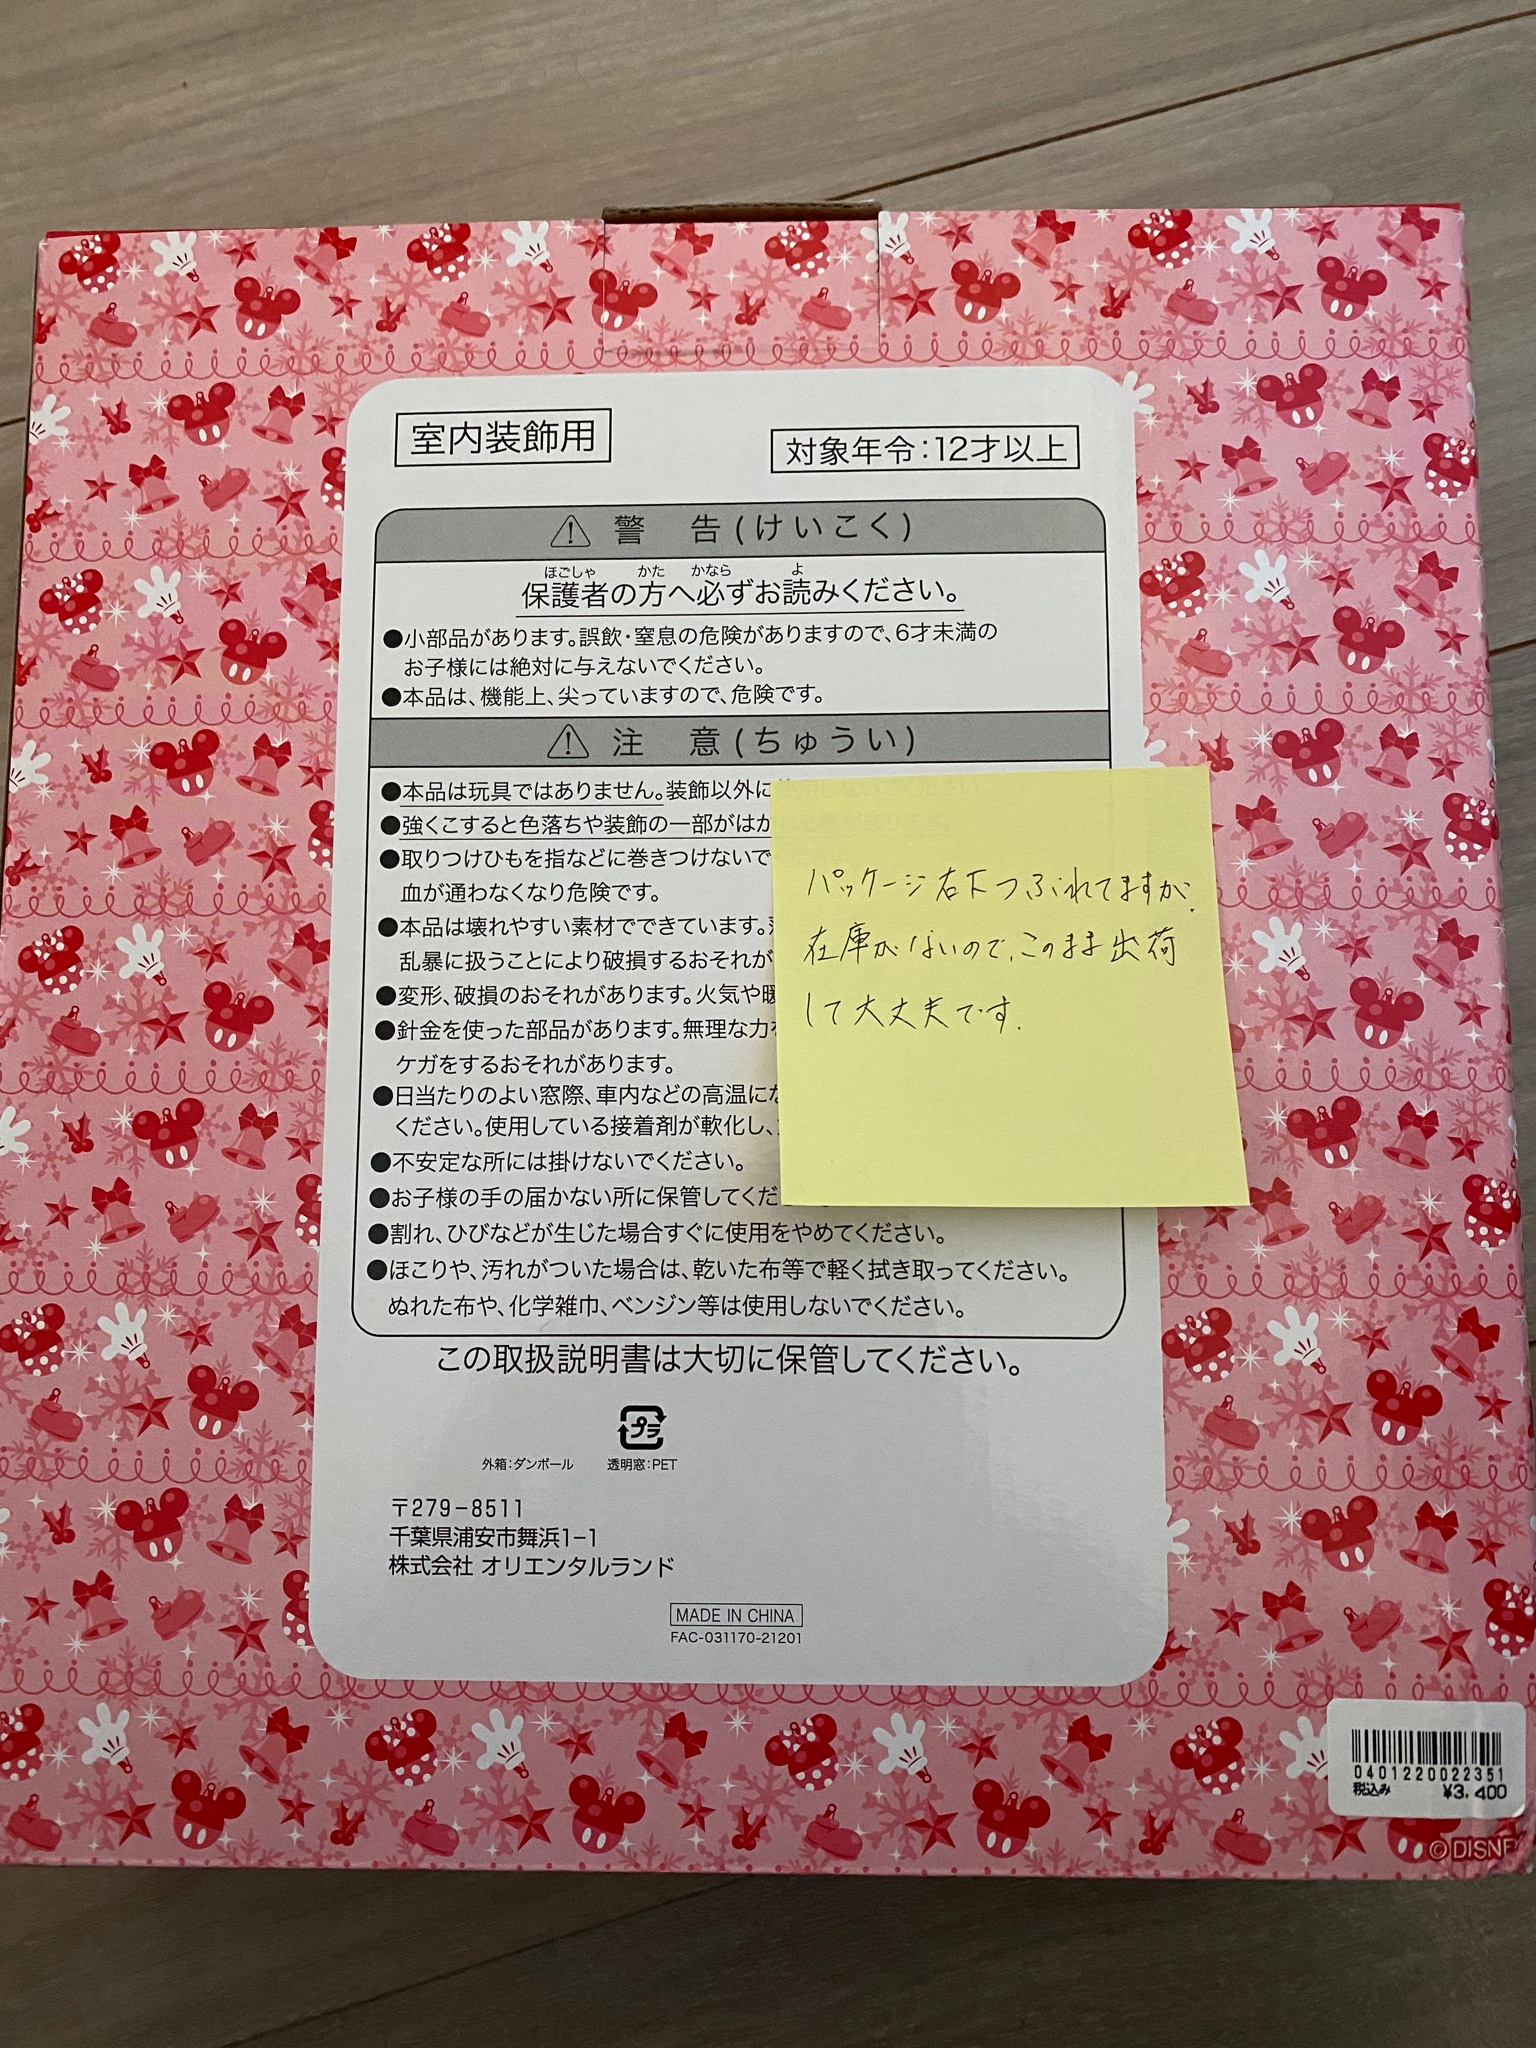 室内装飾用
対象年令:12才以上
警 告(けいこく)
ほごしゃ かた かなら よ
保護者の方へ必ずお読みください。
●小部品があります。誤飲・窒息の危険がありますので、6才未満の
お子様には絶対に与えないでください。
●本品は、機能上、尖っていますので、危険です。
注 意(ちゅうい)
●本品は玩具ではありません。装飾以外に
●強くこすると色落ちや装飾の一部がはが
●取りつけひもを指などに巻きつけないで
血が通わなくなり危険です。
●本品は壊れやすい素材でできています。
乱暴に扱うことにより破損するおそれが
●変形、破損のおそれがあります。火気や暖
●針金を使った部品があります。無理な力を
ケガをするおそれがあります。
●日当たりのよい窓際、車内などの高温にな
ください。使用している接着剤が軟化し、
●不安定な所には掛けないでください。
●お子様の手の届かない所に保管してくだ
●割れ、ひびなどが生じた場合すぐに使用をやめてください。
●ほこりや、汚れがついた場合は、乾いた布等で軽く拭き取ってください。
ぬれた布や、化学雑巾、ベンジン等は使用しないでください。
パッケージ右下つぶれてますが、
在庫がないので、このまま出荷
して大丈夫です。
この取扱説明書は大切に保管してください。
プラ
外箱:ダンボール 透明窓:PET
〒279-8511
千葉県浦安市舞浜1-1
株式会社 オリエンタルランド
MADE IN CHINA
FAC-031170-21201
0401220022351
税込み ¥3,400
©DISNE